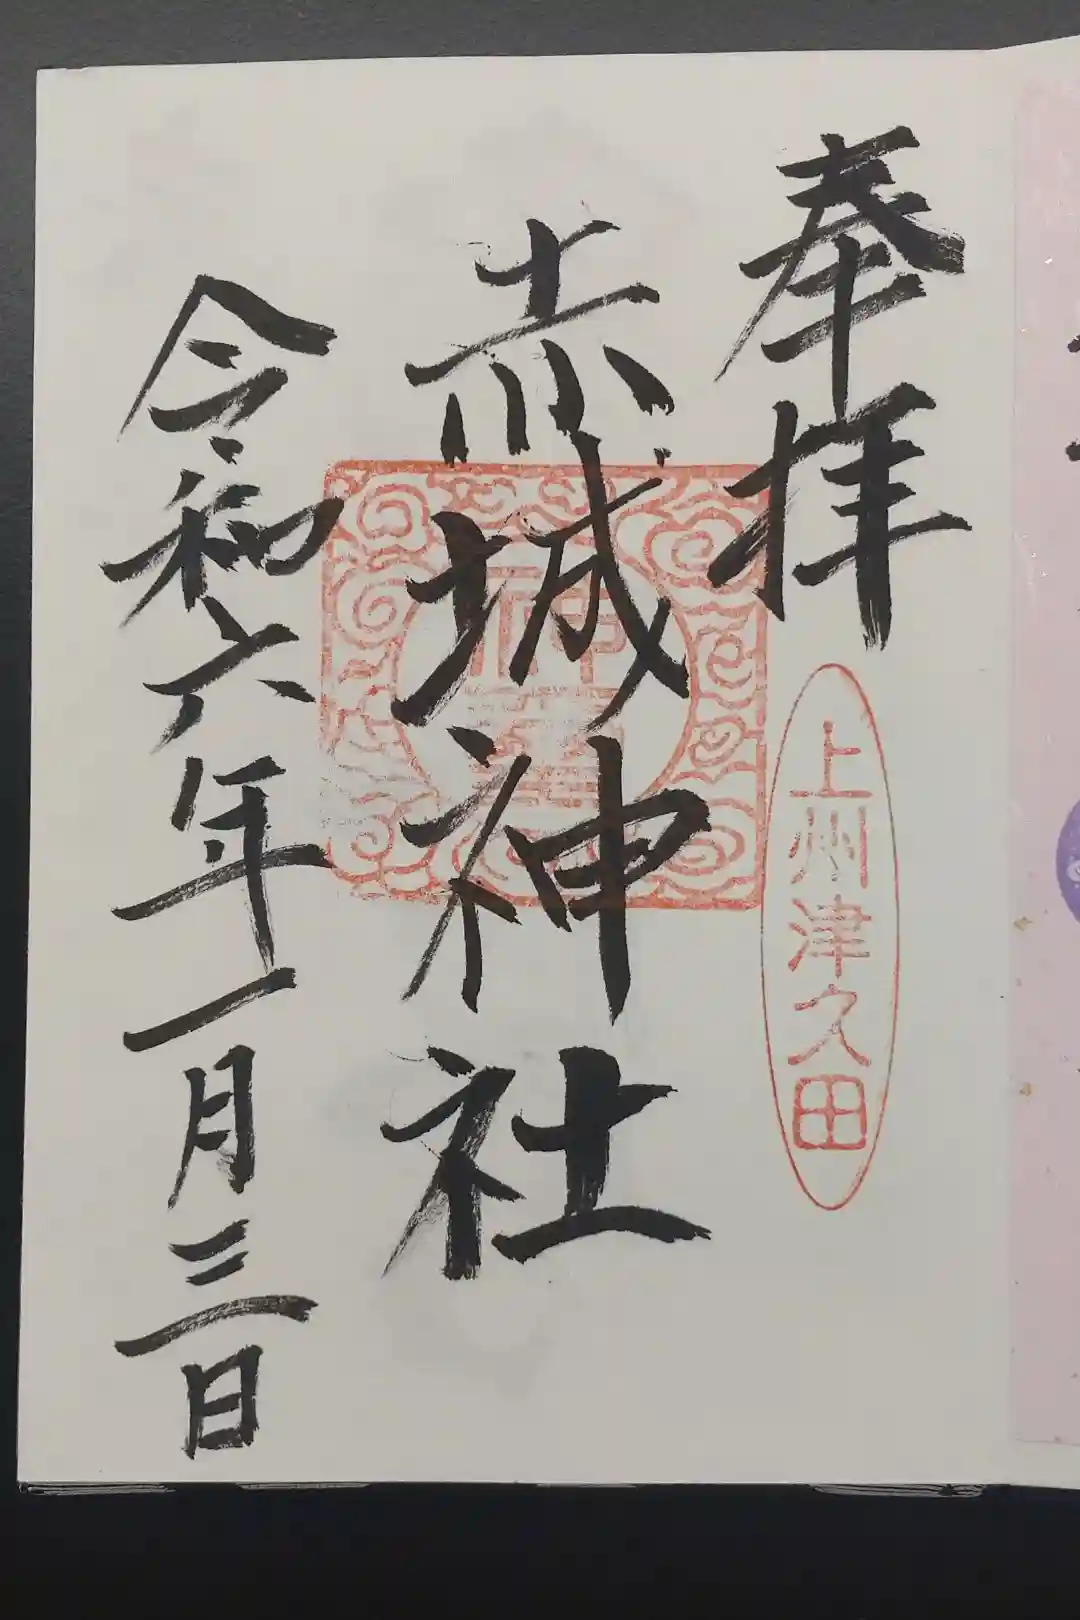 奉拝
上州津久田
赤城神社
令和六年一月三日